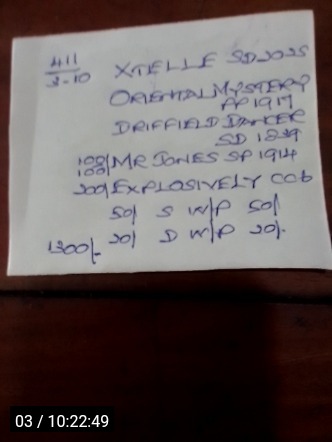 411
3-10
XTELLE SD2025
ORIENTAL MYSTERY
PP1917
DRIFFIELD DANCER
SD 1829
100/100/ MR JONES SP 1914
200/ EXPLOSIVELY COB
50/ S W/P 50/
1300/- 20/ D W/P 20/-
03 / 10:22:49